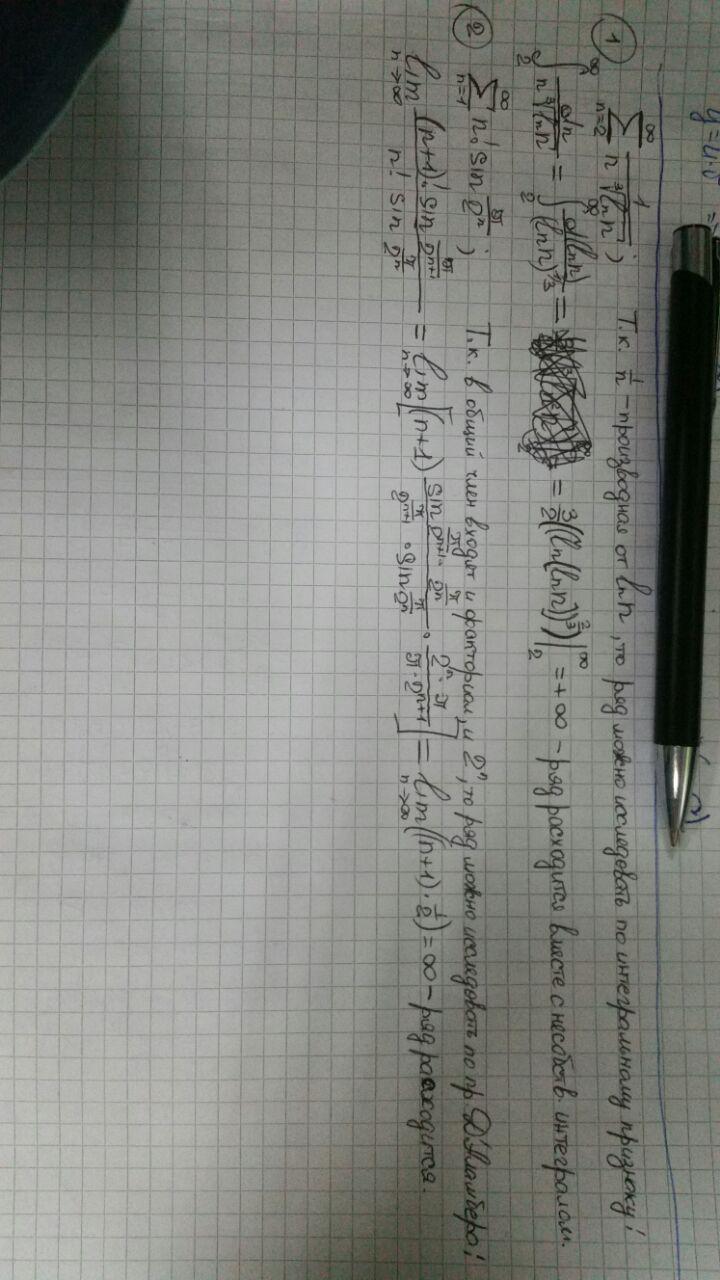 y=4.5
① ∑_{n=2}^{∞} 1/(n ∛(ln n)) ; Т.к. 1/n - производная от ln n, то ряд можно исследовать по интегральному признаку:
∫_2^∞ dn/(n ∛(ln n)) = ∫_2^∞ d(ln n)/(ln n)^{1/3} = = 3/2 ((ln(ln n))^{2/3})|_2^∞ = +∞ - ряд расходится вместе с несобств. интегралом.
② ∑_{n=1}^{∞} n! sin π/2^n ; Т.к. в общий член входят и факториал, и 2^n, то ряд можно исследовать по пр. Д'Аламбера:
lim_{n→∞} ((n+1)! sin π/2^{n+1})/(n! sin π/2^n) = lim_{n→∞} [(n+1) (sin π/2^{n+1} · π/2^n)/(π/2^{n+1} · sin π/2^n) · (2^n · π)/(π · 2^{n+1})] = lim_{n→∞} ((n+1) · 1/2) = ∞ - ряд расходится.